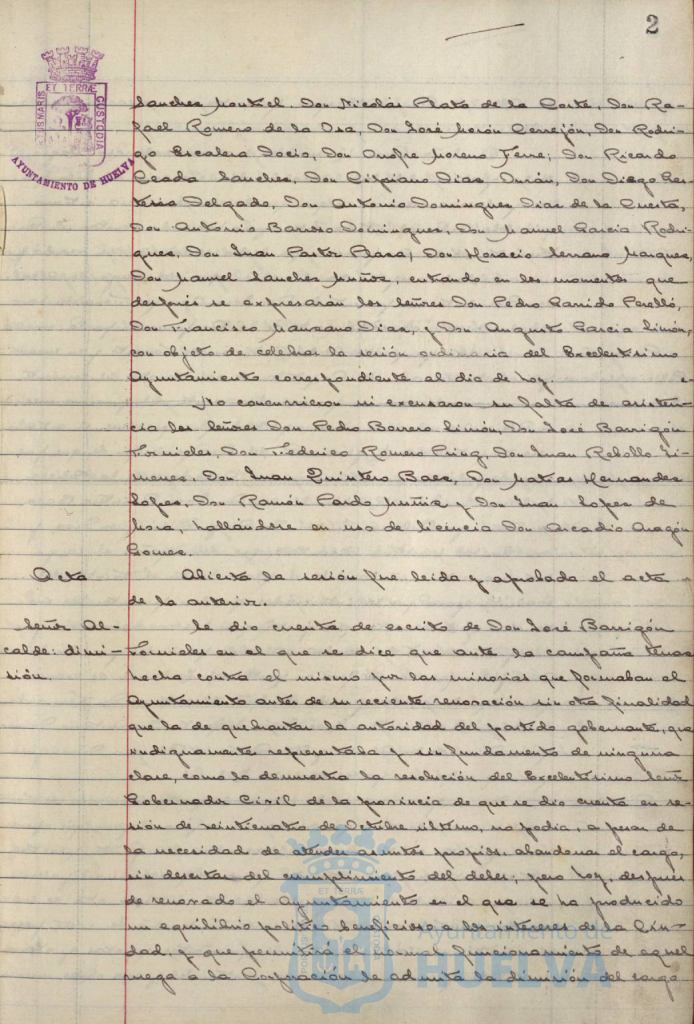 2
ET TERRÆ
CUSTODIA
AYUNTAMIENTO DE HUELVA
Sanchez Montiel, Don Nicolás Plata de la Corte, Don Ra-
fael Romero de la Osa, Don José Morón Cerrejón, Don Rodri-
go Escalera Socio, Don Onofre Moreno Ferre; Don Ricardo
Ceada Sanchez, Don Cipriano Diaz Durán, Don Diego
Delgado, Don Antonio Dominguez Diaz de la Cuesta,
Don Antonio Barroso Dominguez, Don Manuel Garcia Rodri-
guez, Don Juan Pastor Plaza, Don Horacio Serrano Marquez,
Don Manuel Sanchez Muñoz, entrando en los momentos que
después se expresarán los señores Don Pedro Garrido Perelló,
Don Francisco Manzano Diaz, y Don Augusto Garcia Limón,
con objeto de celebrar la sesión ordinaria del Excelentisimo
Ayuntamiento correspondiente al dia de hoy.
No concurrieron ni excusaron su falta de asisten-
cia los señores Don Pedro Borrero Limón, Don José Barrigón
Fornieles, Don Federico Romero Don Juan Rebollo Ji-
menez, Don Juan Quintero Baez, Don Matias Hernandez
Lopez, Don Ramón Pardo Muñiz y Don Juan Lopez de
Mora, hallándose en uso de licencia Don Arcadio Aragón
Gomez.
Acta
Abierta la sesión fue leida y aprobada el acta
de la anterior.
Señor Al-
calde: dimi-
sión.
Se dio cuenta de escrito de Don José Barrigón
Fornieles en el que se dice que ante la campaña tenaz
hecha contra el mismo por las minorias que formaban el
Ayuntamiento antes de su reciente renovación sin otra finalidad
que la de quebrantar la autoridad del partido gobernante, que
indignamente representaba y sin fundamento de ninguna
clase, como lo demuestra la resolución del Excelentisimo Señor
Gobernador Civil de la provincia de que se dio cuenta en se-
sión de veinticuatro de Octubre último, no podia, a pesar de
la necesidad de atender asuntos propios, abandonar el cargo,
sin desertar del cumplimiento del deber; pero hoy, después
de renovado el Ayuntamiento en el que se ha producido
un equilibrio politico beneficioso a los intereses de la Ciu-
dad, y que permitirá el normal funcionamiento de aquel
ruega a la Corporación le admita la dimisión del cargo
Ayuntamiento de
HUELVA